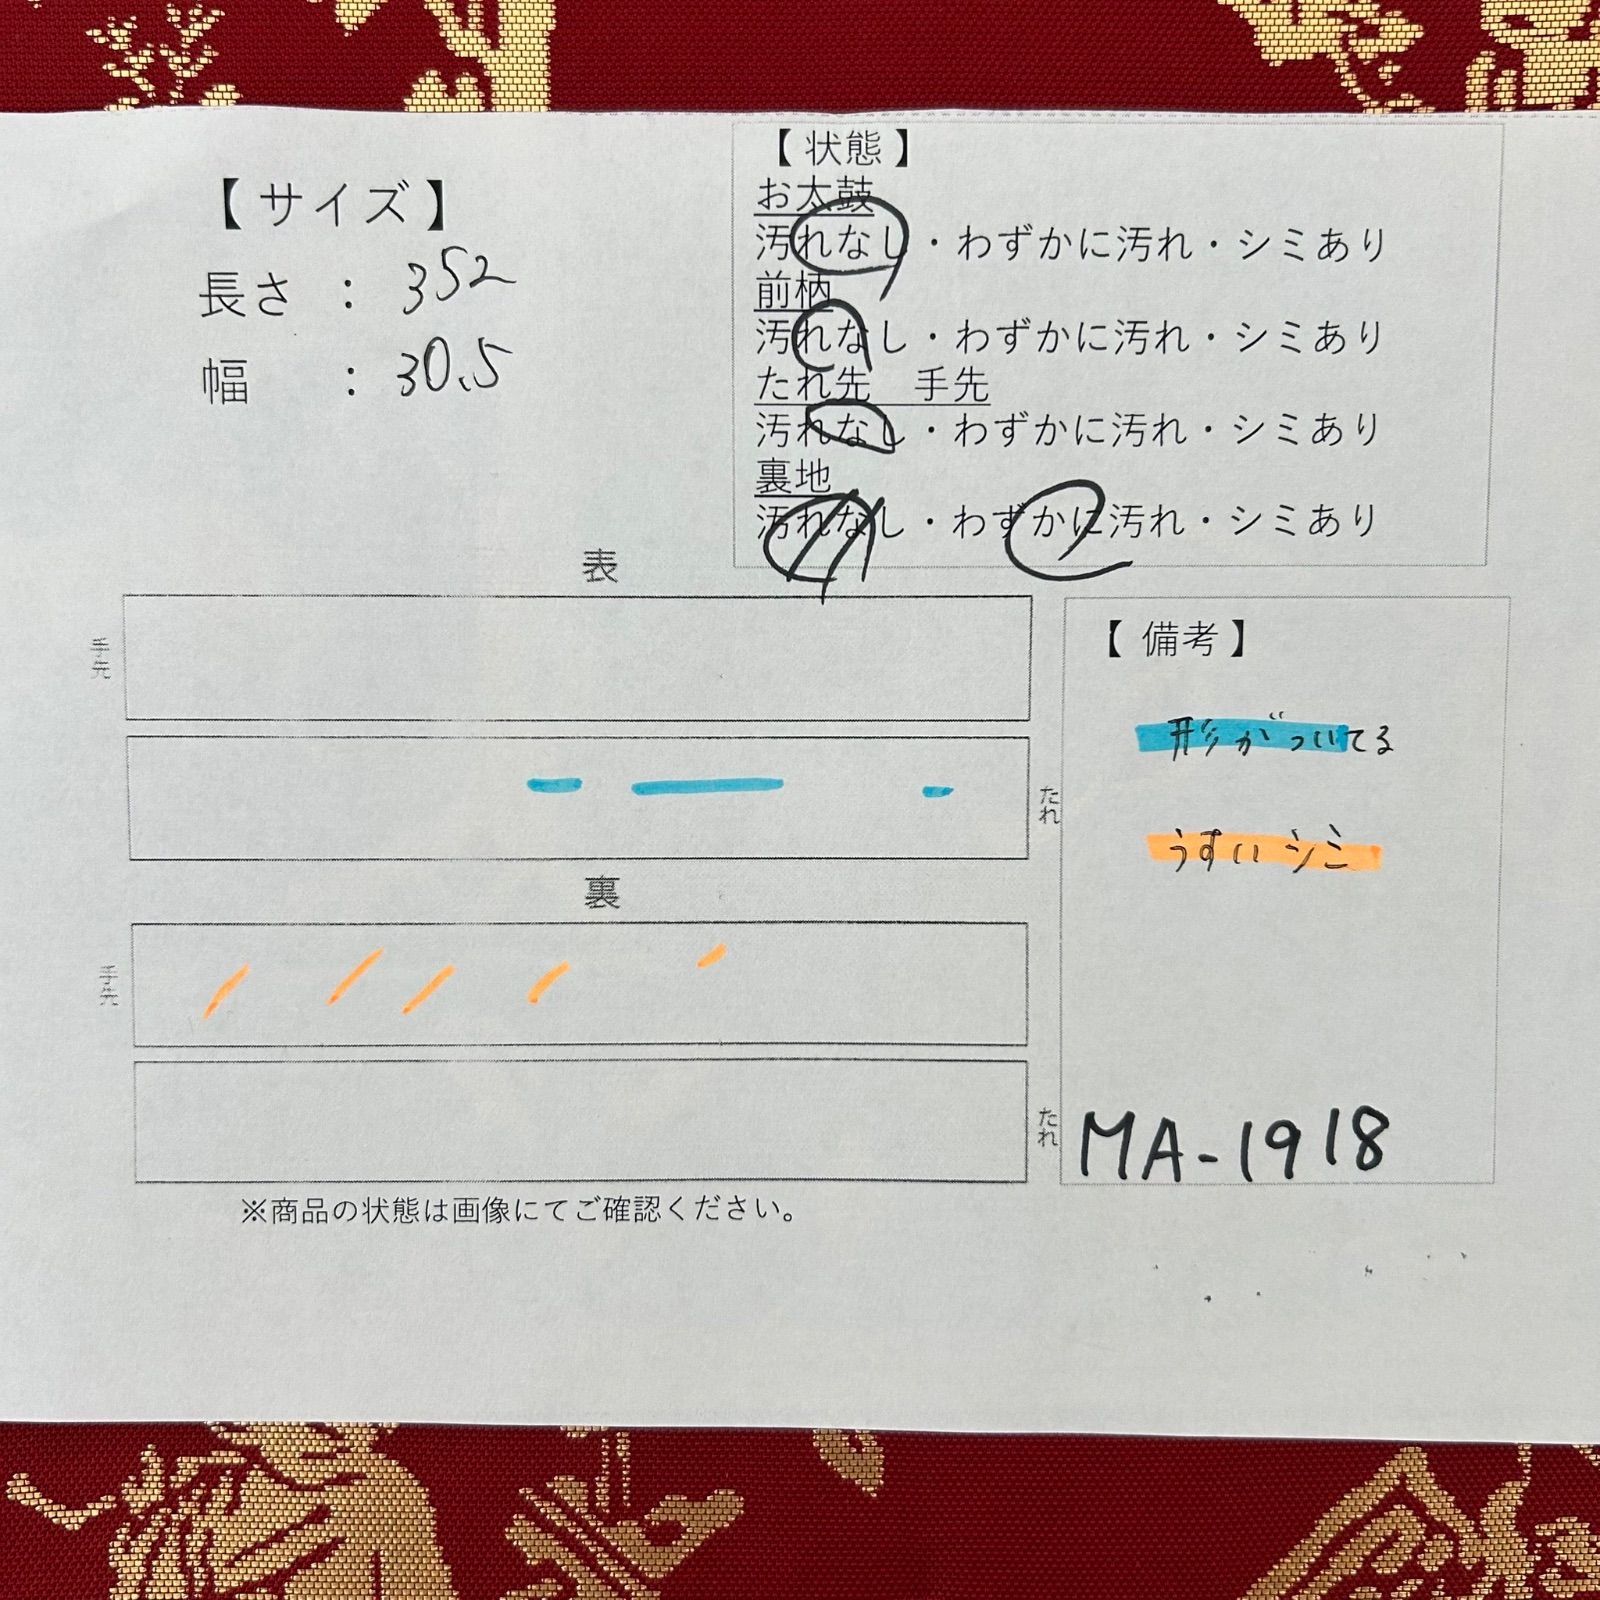 【 サイズ 】
長さ : 352
幅 : 30.5
【 状態 】
お太鼓
汚れなし・わずかに汚れ・シミあり
前柄
汚れなし・わずかに汚れ・シミあり
たれ先 手先
汚れなし・わずかに汚れ・シミあり
裏地
汚れなし・わずかに汚れ・シミあり
表
手先
たれ
裏
手先
たれ
【 備考 】
形がついてる
うすいシミ
MA-1918
※商品の状態は画像にてご確認ください。